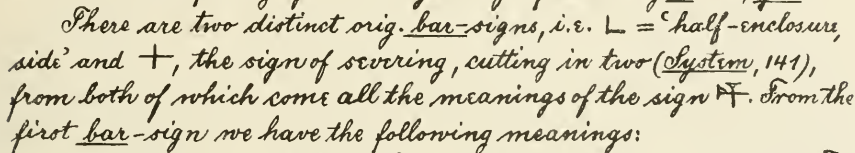 There are two distinct orig. bar-signs, i.e. L = 'half-enclosure,
side' and +, the sign of severing, cutting in two (System, 141),
from both of which come all the meanings of the sign. From the
first bar-sign we have the following meanings: